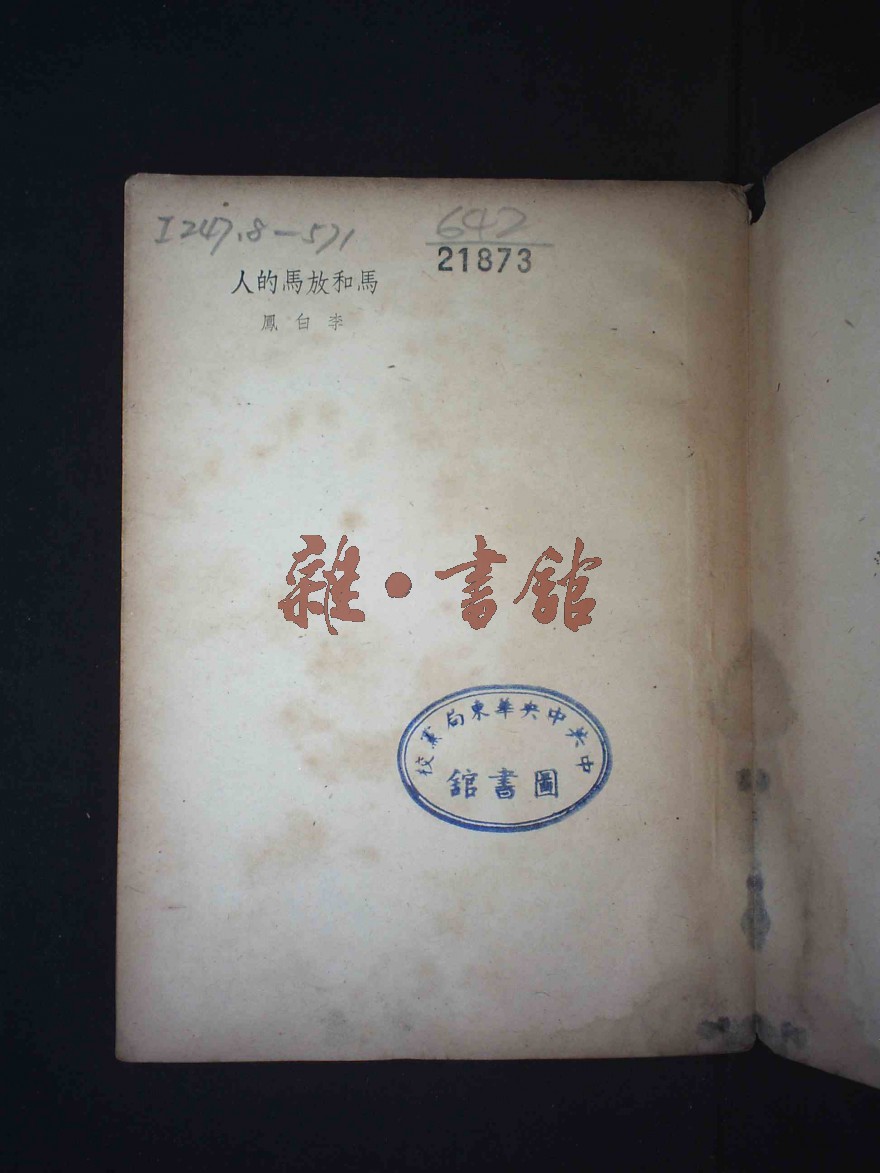 I247.8-571
642
21873
人的馬放和馬
鳳白李
雜·書舘
中共中央華東局黨校
舘書圖